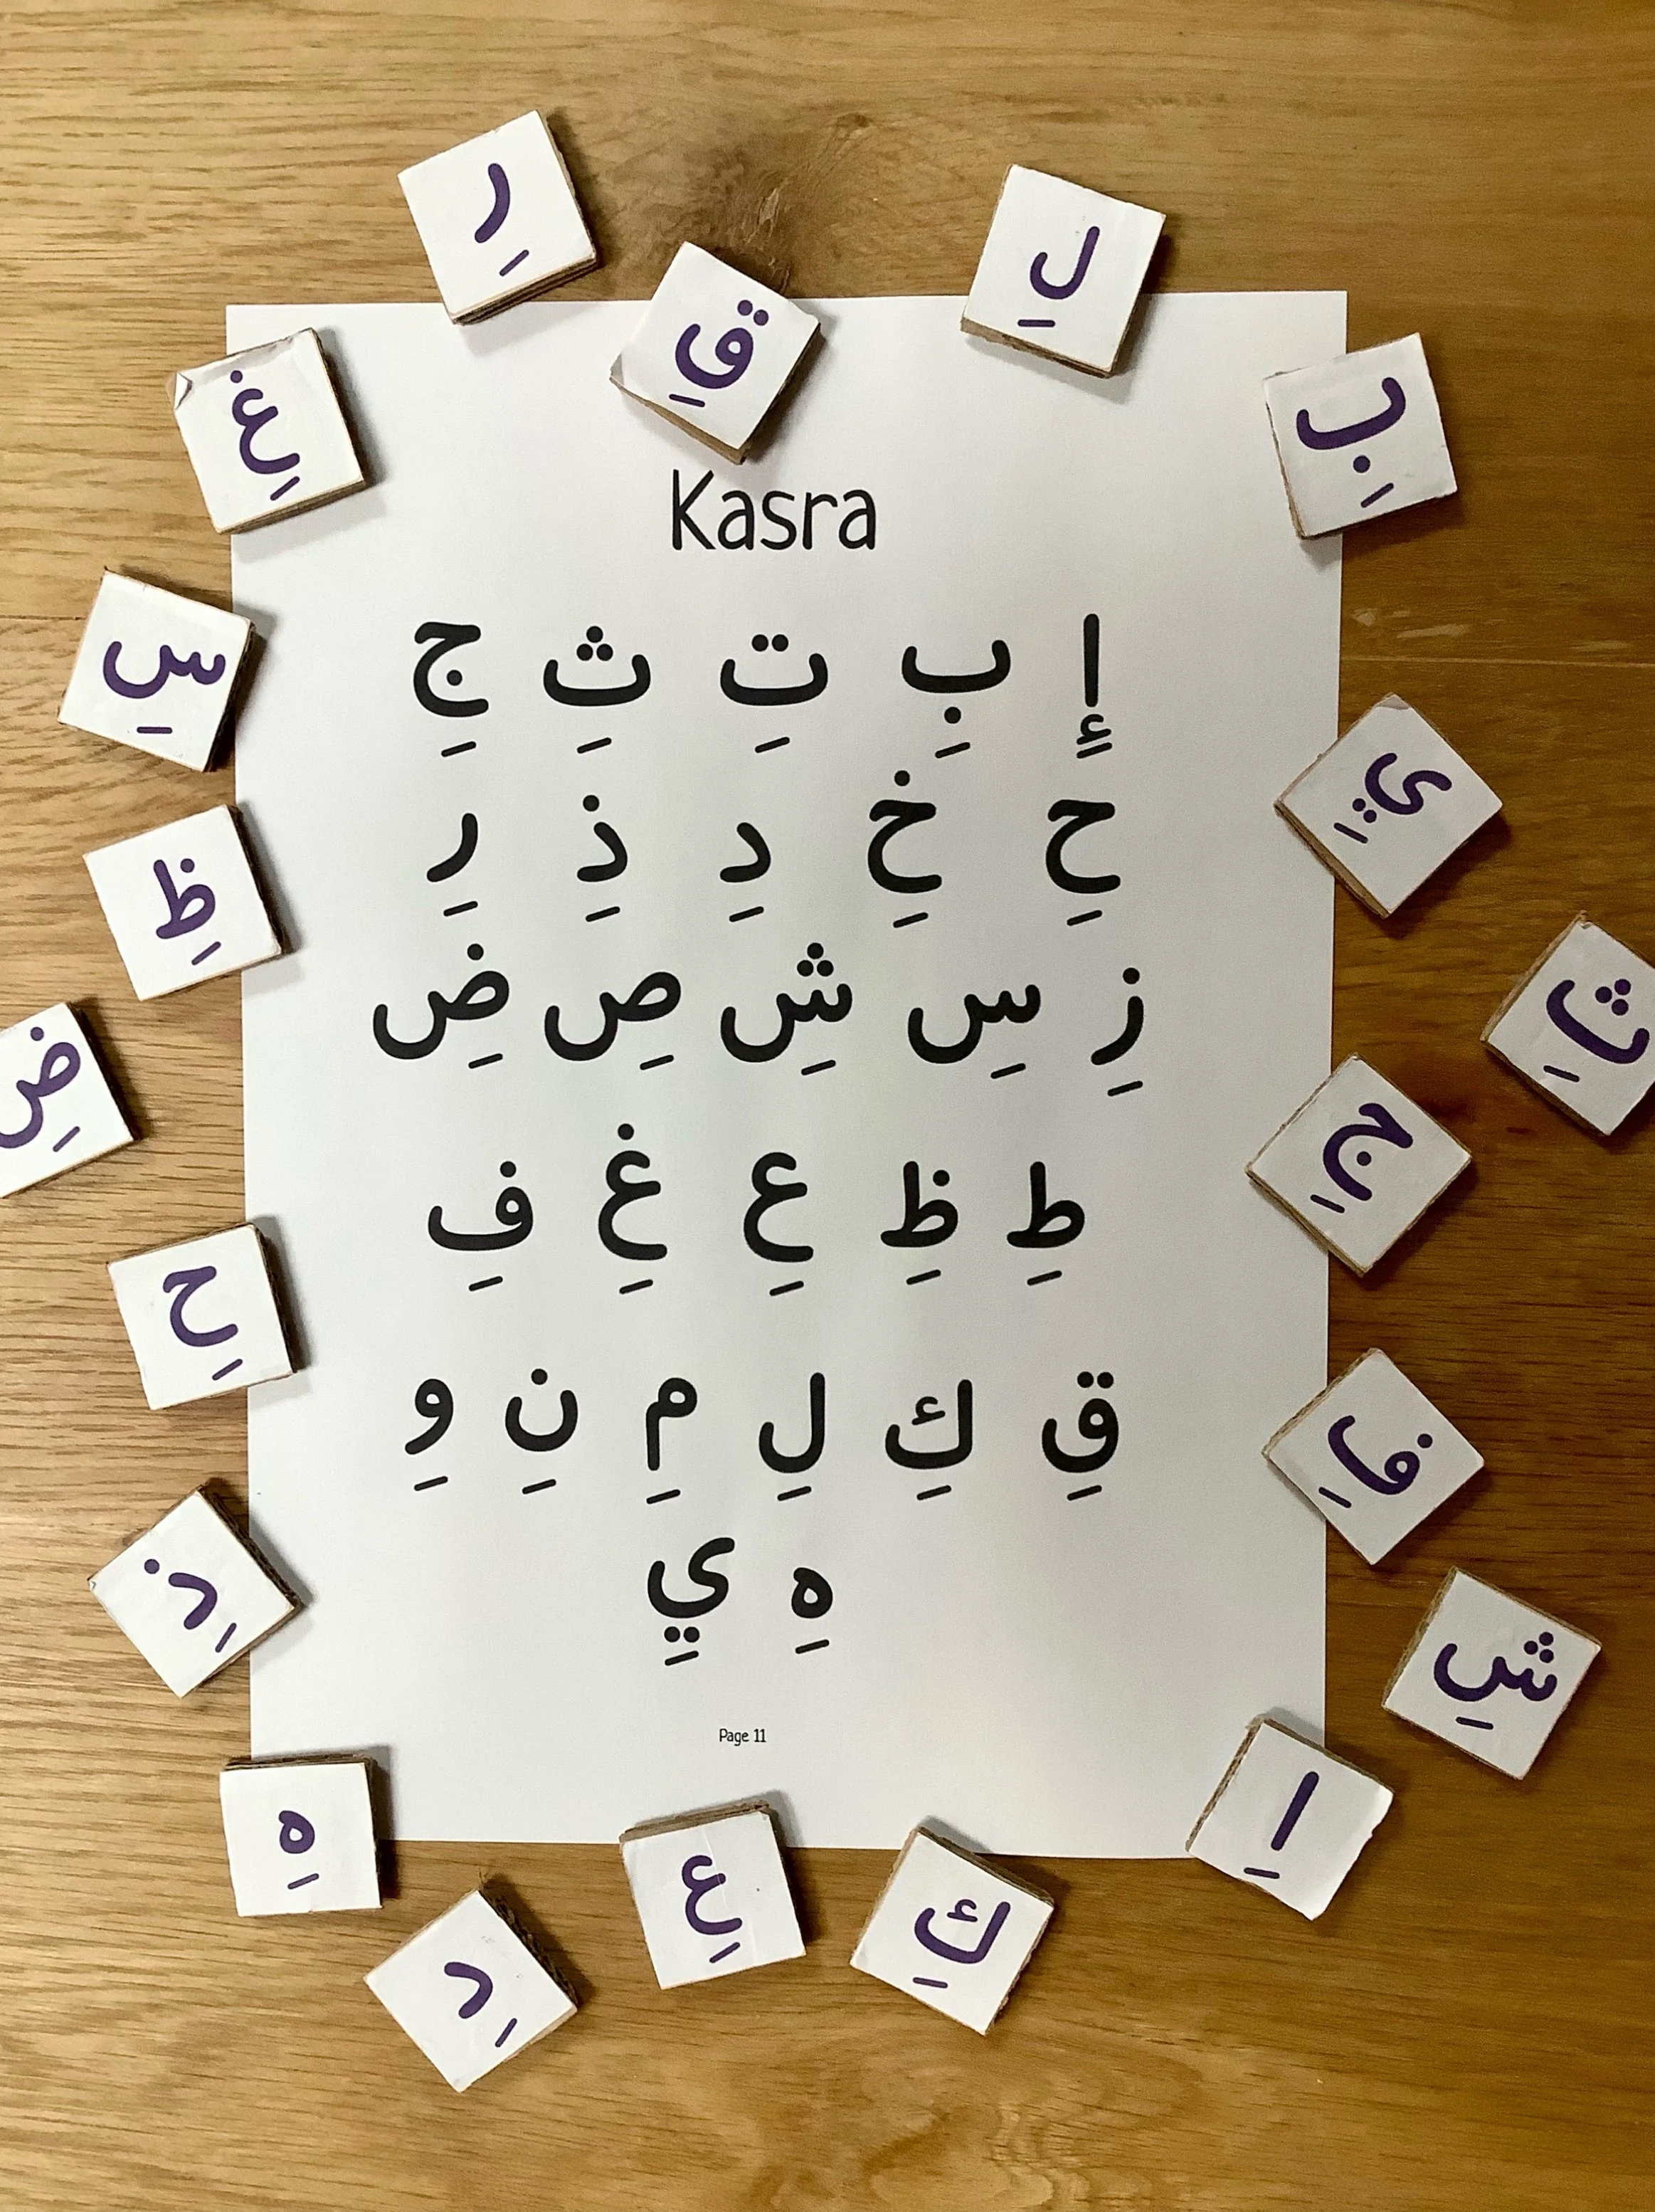 رِ
لِ
قِ
بِ
غِ
Kasra
إِ بِ تِ ثِ جِ
حِ خِ دِ ذِ رِ
زِ سِ شِ صِ ضِ
طِ ظِ عِ غِ فِ
قِ كِ لِ مِ نِ وِ
هِ يِ
Page 11
سِ
ظِ
ضِ
حِ
ذِ
هِ
دِ
عِ
كِ
اِ
شِ
فِ
جِ
ثِ
يِ